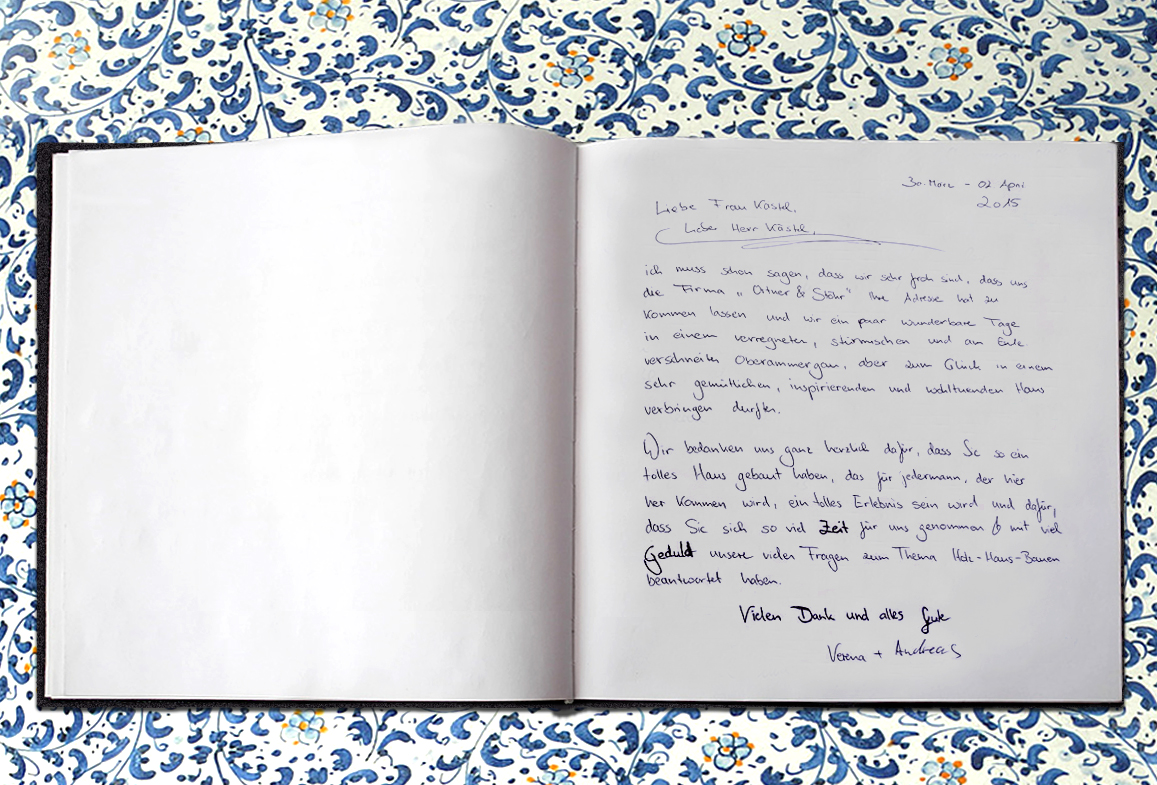 30. März - 02 April
2015
Liebe Frau Kästel,
Lieber Herr Kästel,
ich muss schon sagen, dass wir sehr froh sind, dass uns
die Firma „Ortner & Stöhr" Ihre Adresse hat zu
kommen lassen und wir ein paar wunderbare Tage
in einem verregneten, stürmischen und am Ende
verschneiten Oberammergau, aber zum Glück in einem
sehr gemütlichen, inspirierenden und wohltuenden Haus
verbringen durften.
Wir bedanken uns ganz herzlich dafür, dass Sie so ein
tolles Haus gebaut haben, das für jedermann, der hier
her kommen wird, ein tolles Erlebnis sein wird und dafür,
dass Sie sich so viel Zeit für uns genommen & mit viel
Geduld unsere vielen Fragen zum Thema Holz-Haus-Bauen
beantwortet haben.
Vielen Dank und alles Gute
Verena + Andreas